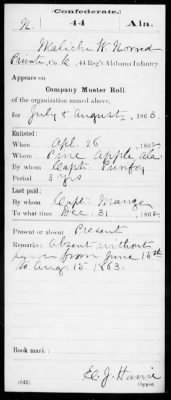 Confederate.
N. 44 Ala.
Malichi W. Norred
Private, Co. K, 44 Reg't Alabama Infantry.
Appears on
Company Muster Roll
of the organization named above,
for July & August, 1863.
Enlisted:
When Apl. 26, 186
Where Pine Apple, Ala
By whom Capt.
Period 3 yrs
Last paid:
By whom Capt.
To what time Dec. 31, 1862
Present or absent Present
Remarks: Absent without
from June 15th
to Aug. 15 1863.
Book mark:
E. J.
(642) Copyist.